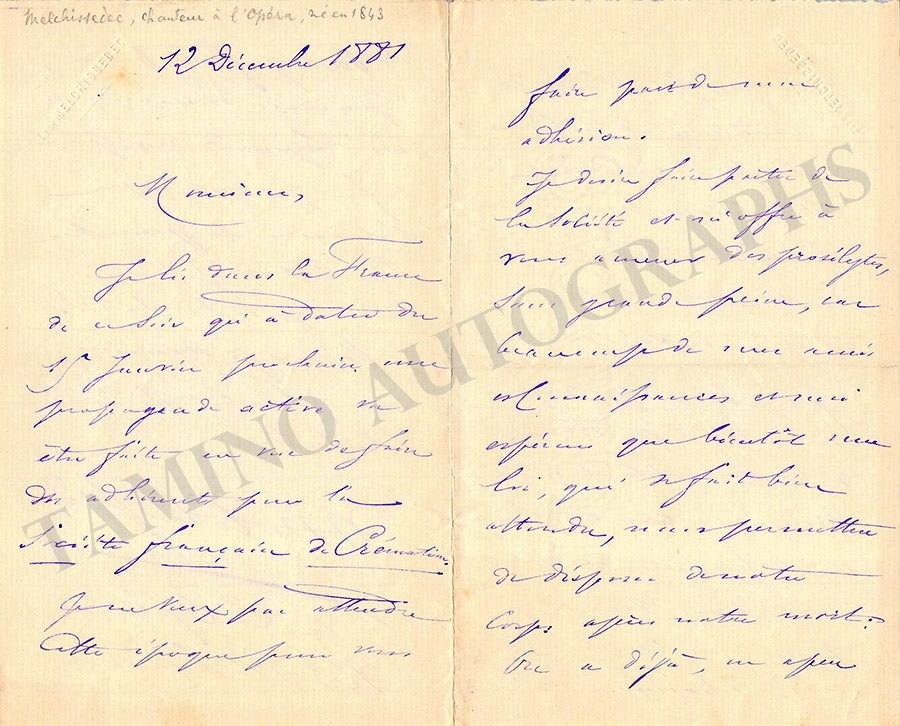 Melchissédec, chanteur à l'Opéra, né en 1843
L. MELCHISSEDEC
12 Décembre 1881
Monsieur,
Je lis dans la France
de ce soir qu'à dater du
15 Janvier prochain une
propagande active va
être faite en vue de faire
des adhérents pour la
Société française de Crémation.
Je ne veux pas attendre
cette époque pour vous
L. MELCHISSEDEC
faire part de mon
adhésion.
Je désire faire partie de
la Société et m'offre à
vous amener des prosélytes,
sans grande peine, car
beaucoup de mes amis
et connaissances et moi
espérons que bientôt une
loi, qui se fait bien
attendre, nous permettra
de disposer de notre
corps après notre mort.
On a déjà, un peu
TAMINO AUTOGRAPHS